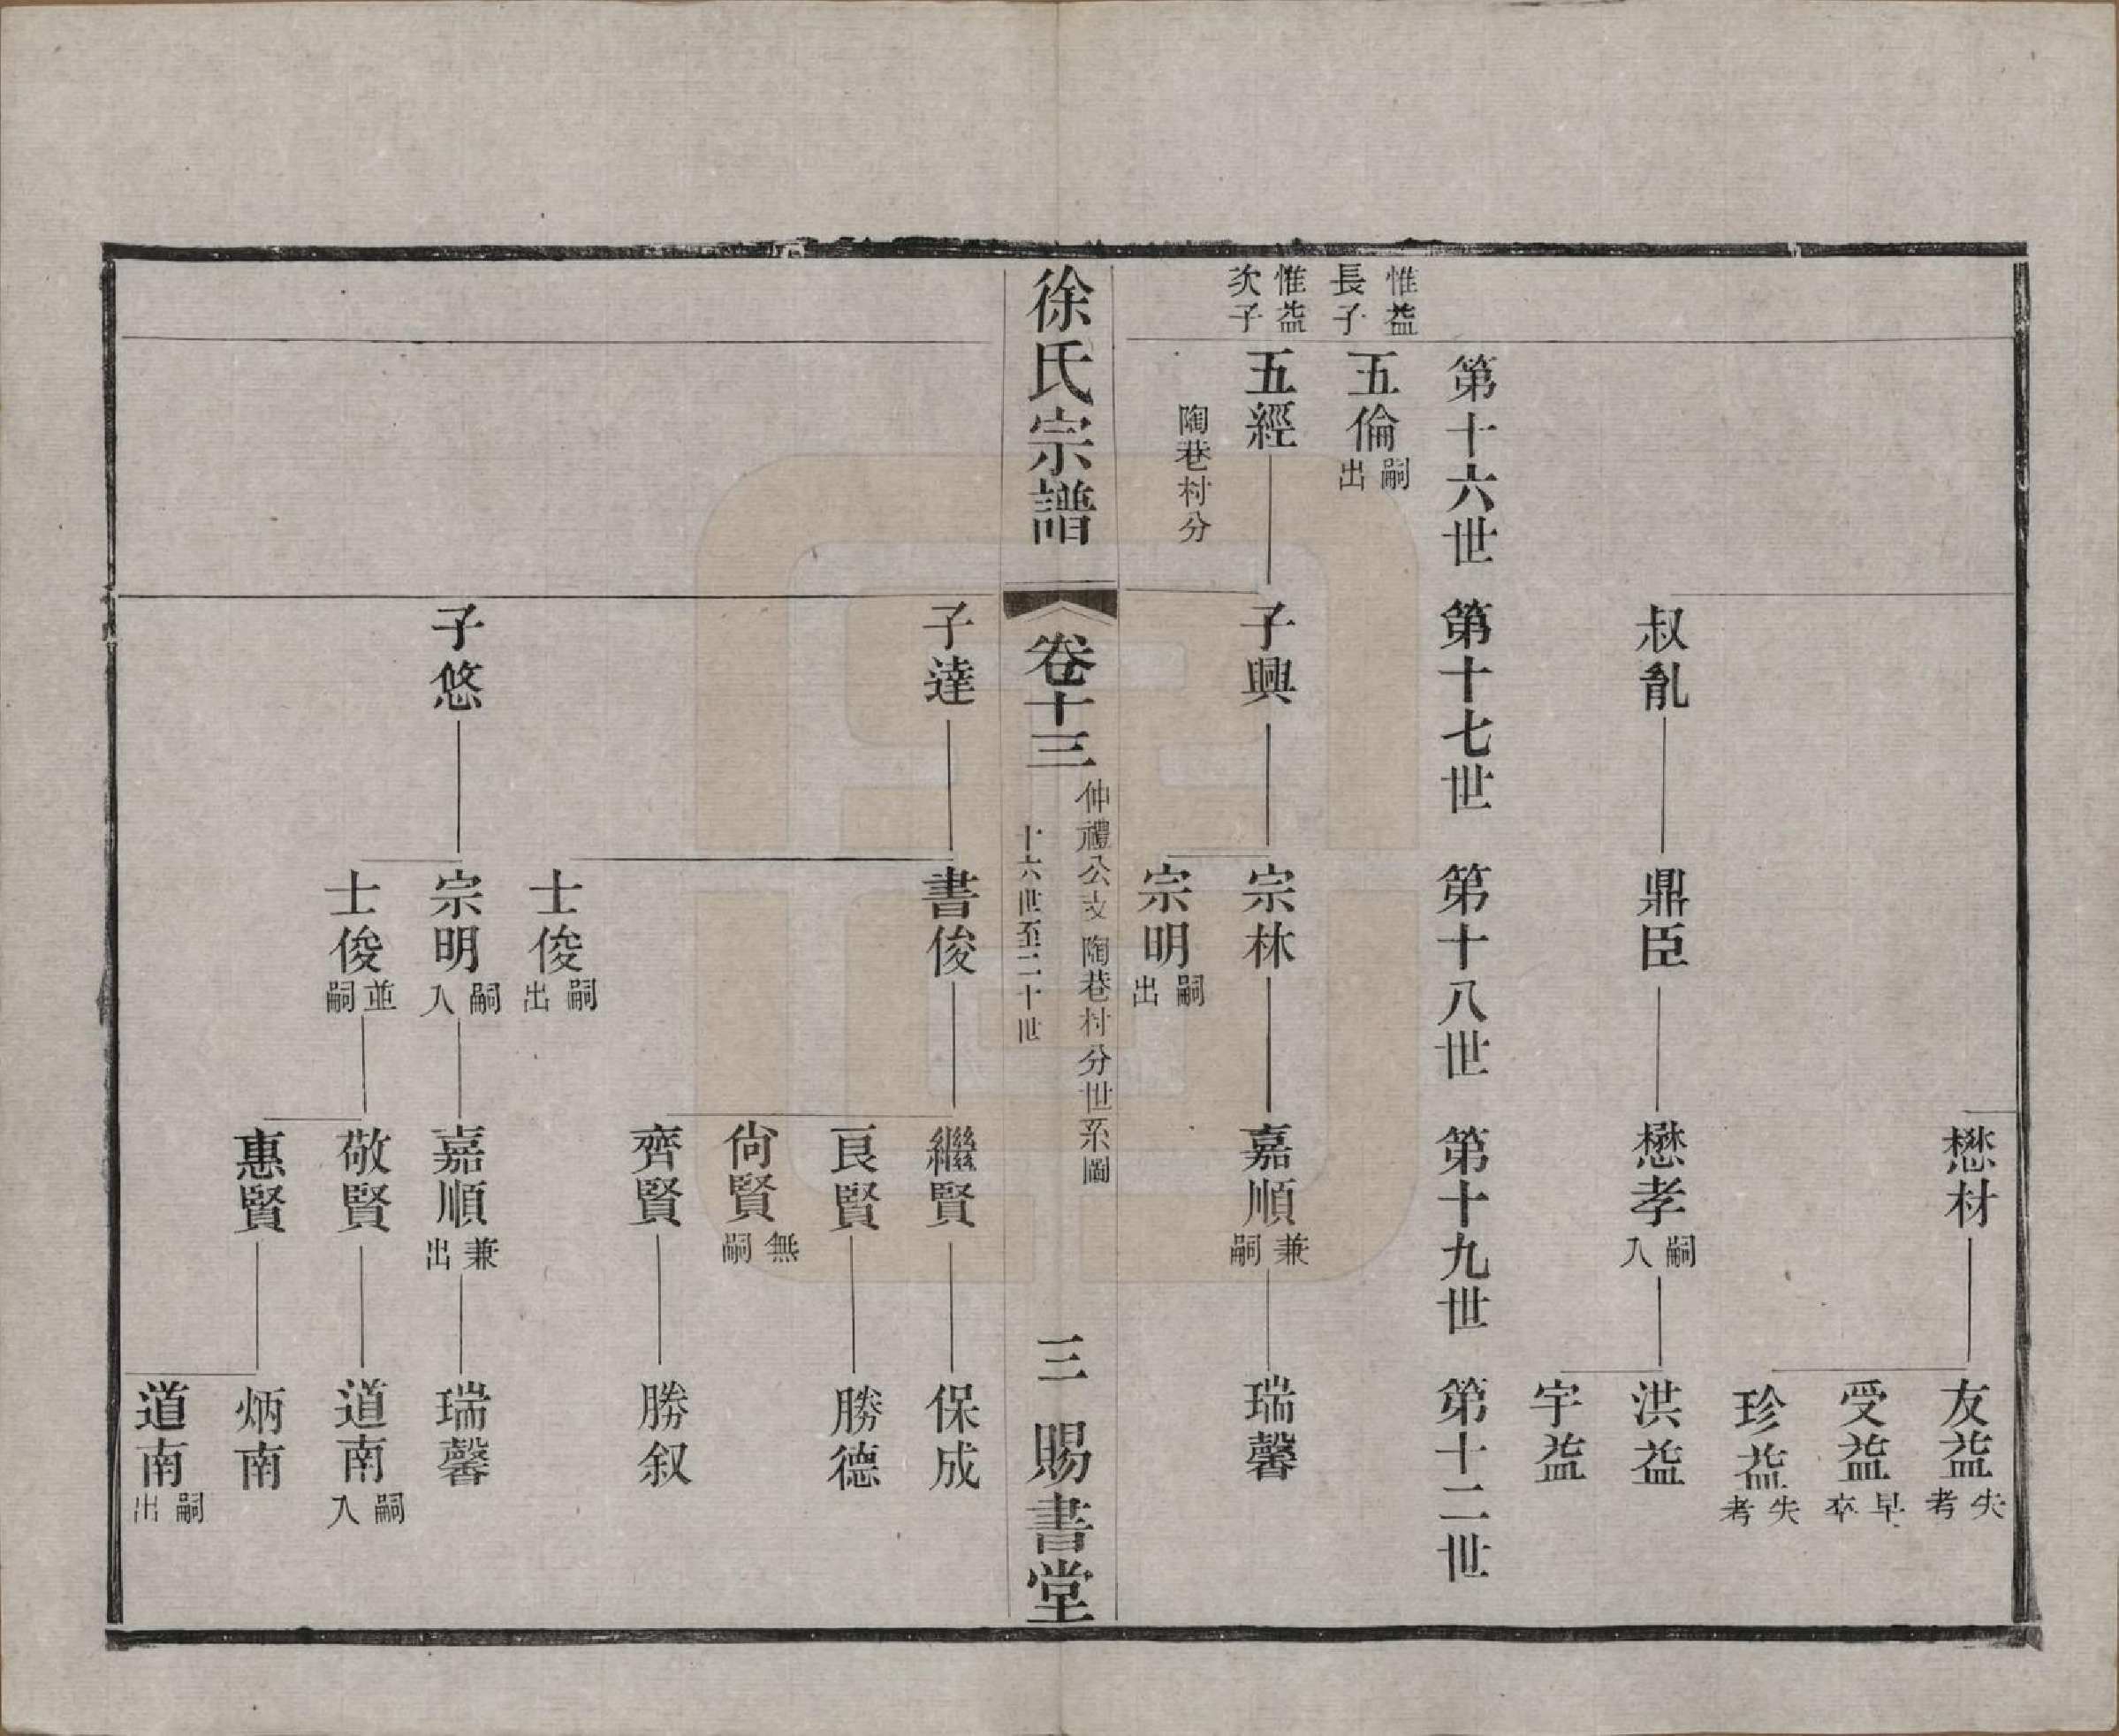 懋材
友益失考
受益早卒
珍益失考
叔胤
鼎臣
懋孝嗣入
洪益
宇益
第十六世
第十七世
第十八世
第十九世
第十二世
惟益長子
五倫嗣出
惟益次子
五經
子興
宗林
嘉順兼嗣
瑞馨
陶巷村分
宗明嗣出
徐氏宗譜
卷十三
仲禮公支 陶巷村分世系圖
十六世至二十世
三
賜書堂
子達
書俊
繼賢
保成
良賢
勝德
尙賢無嗣
齊賢
勝叙
士俊嗣出
子悠
宗明嗣入
嘉順兼出
瑞馨
士俊並嗣
敬賢
道南嗣入
惠賢
炳南
道南嗣出